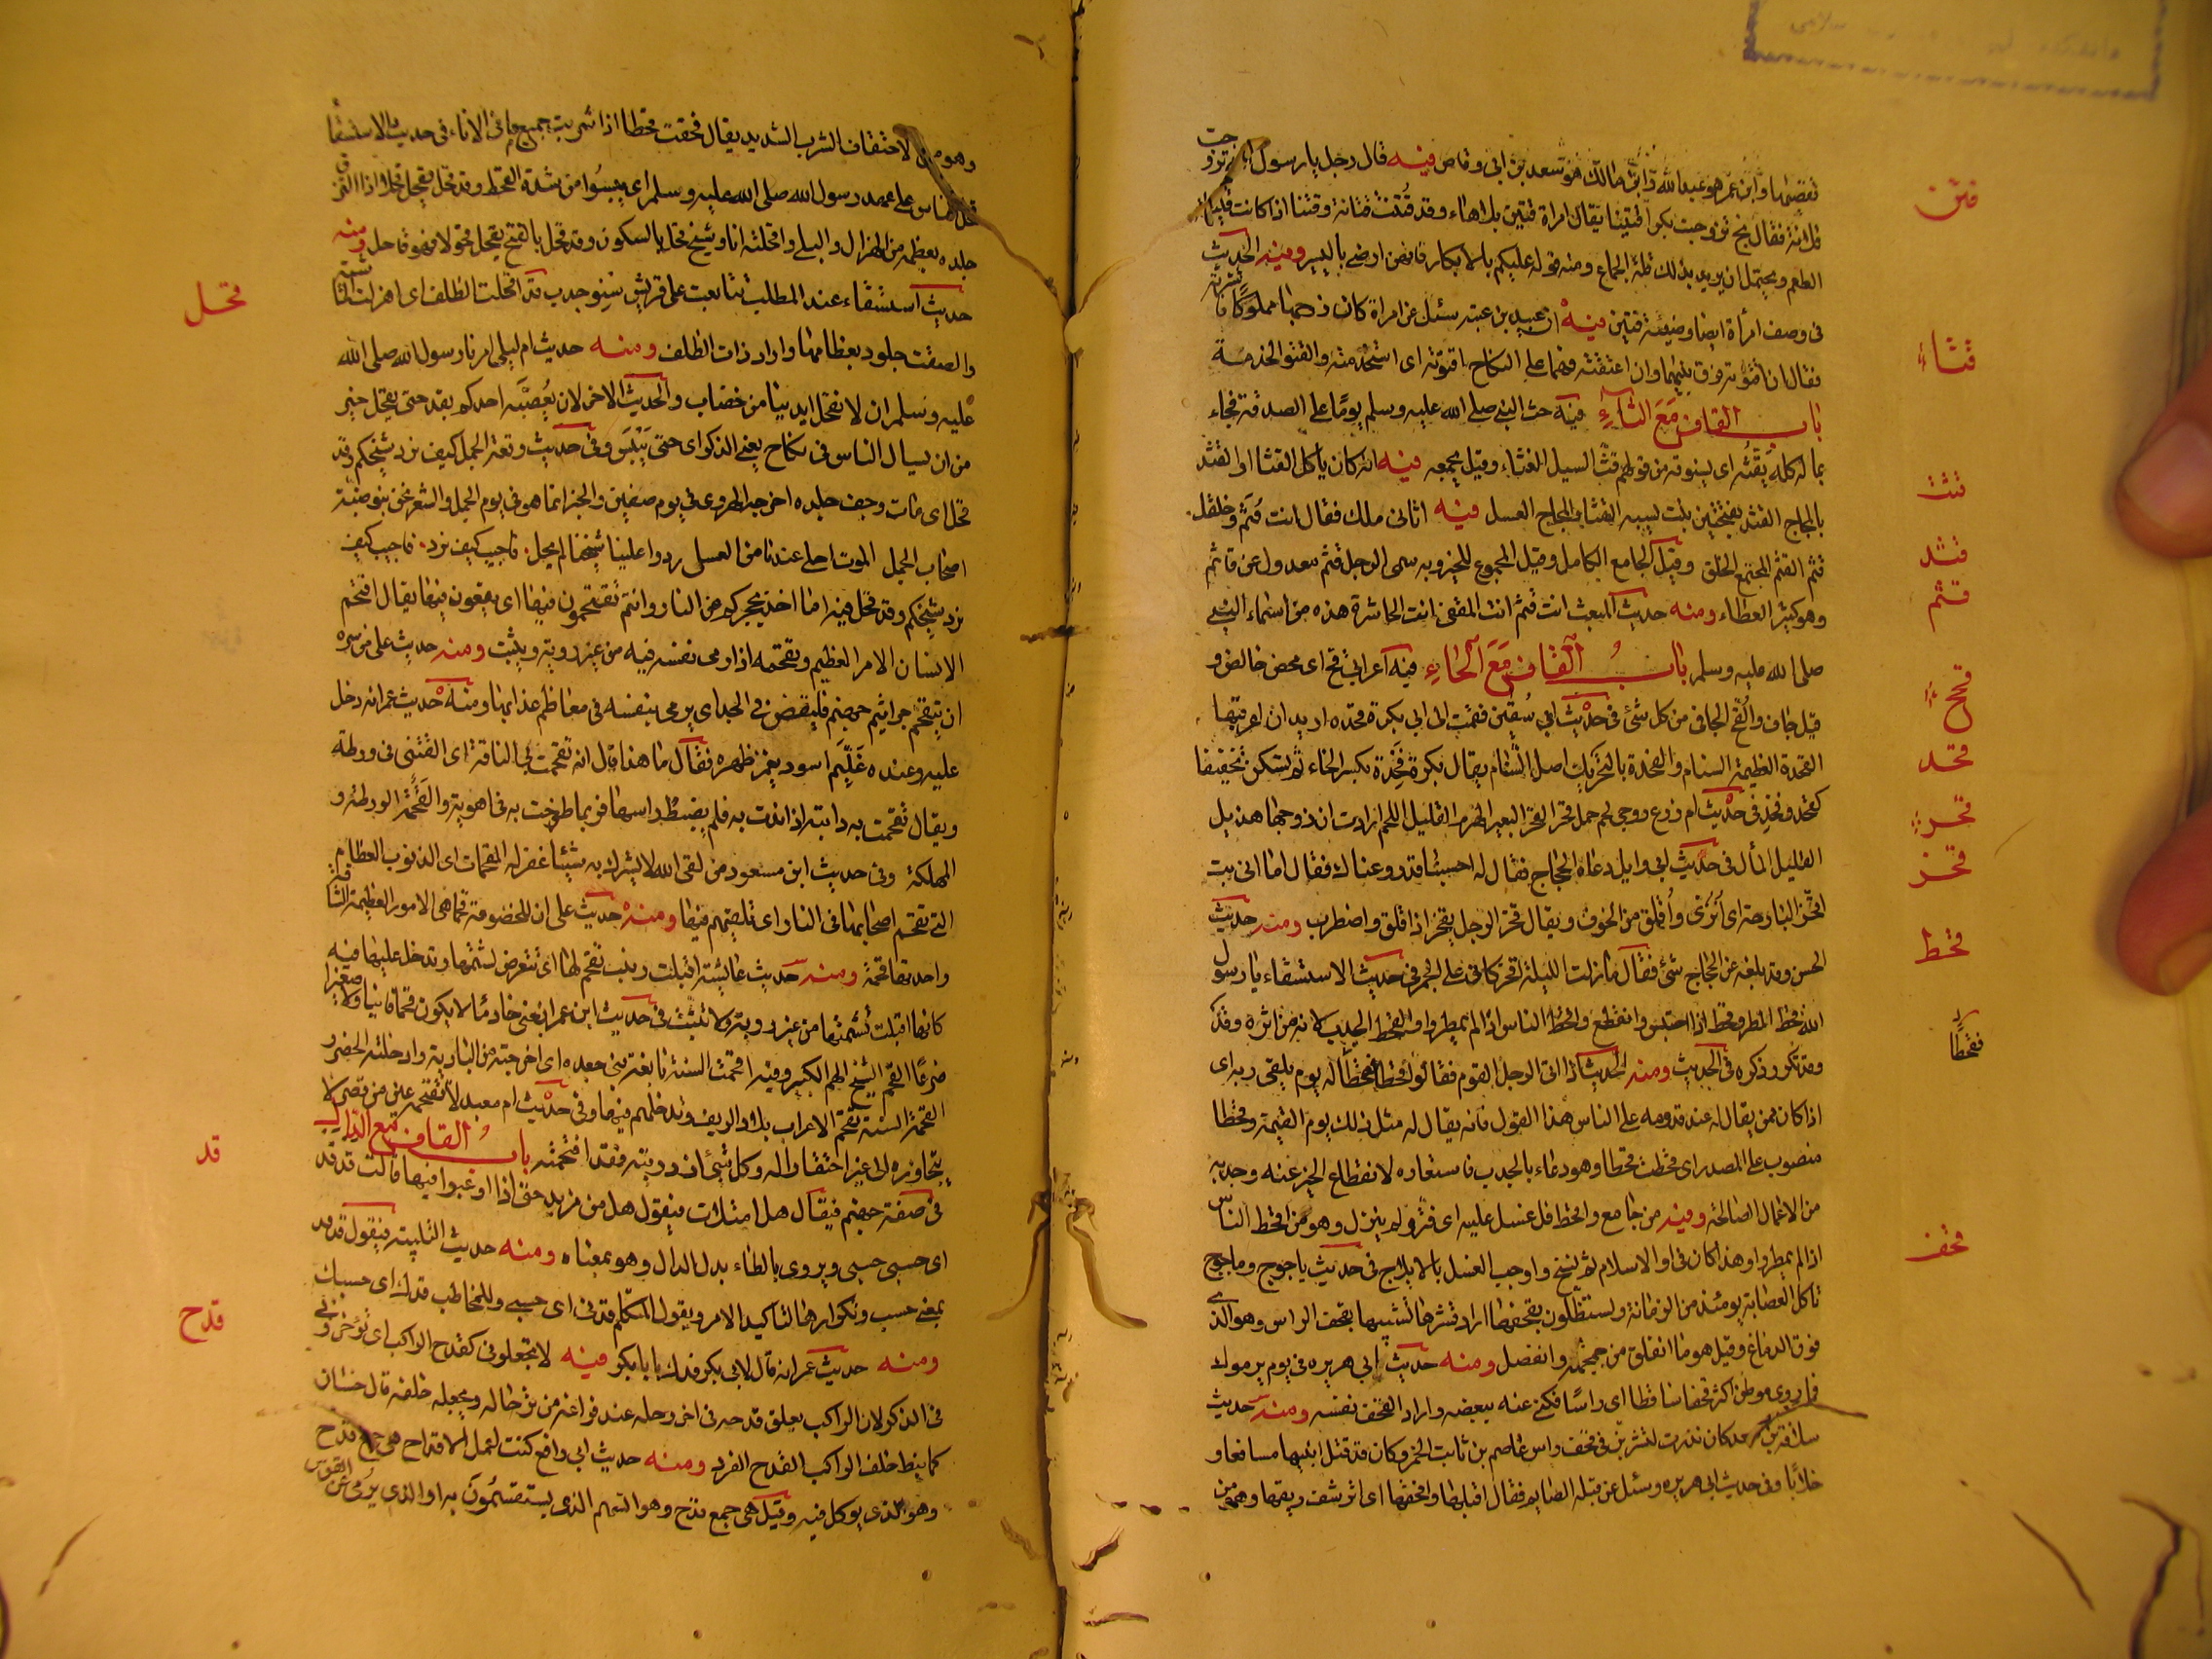 فتن
نعصبها وابن عمر هو عبد الله وابن مالك هو سعد بن ابي وقاص فيه قال رجل يا رسول الله تزوجت
فلانة فقال بخ تزوجت بكرا قتينا يقال امراة قتين بلا هاء وقد قتنت قتانة وقتنا اذا كانت قليلة
الطعم ويحتمل ان يريد بذلك قلة الجماع ومنه قوله عليكم بالابكار فانهن ارضى باليسير ومنه الحديث
فى وصف امرأة انها وضيئة قتين فيه ان عبيد بن عتبة سئل عن امراة كان زوجها مملوكا فاشترته
قتاء
فقال ان اقتوته فرق بينهما وان اعتقته فهما على النكاح اقتوته اى استخدمته والقتو الخدمة
باب القاف مع الثاء فيه حث النبى صلى الله عليه وسلم يوما على الصدقة فجاء
بماله كله يقثه اى يسوقه من قولهم قث السيل الغثاء وقيل يجمعه فيه انه كان ياكل القثا او القثد
قثث
بالمجاج القثد بفتحتين نبت يشبه القثا والمجاج العسل فيه اتانى ملك فقال انت قثم وخلقك
قثد
قثم القثم المجتمع الخلق وقيل الجامع الكامل وقيل الجموع للخير وبه سمى الرجل قثم معدول عن قاثم
قثم
وهو كثير العطاء ومنه حديث المبعث انت قثم انت المقفى انت الحاشر هذه من اسماء النبى
صلى الله عليه وسلم باب القاف مع الحاء فيه اعرابى قح اى محض خالص و
قحح
قيل جاف والقح الجافى من كل شئ فى حديث ابى سفين فقمت الى بكرة قحدة اريد ان اعرقبها
القحدة العظيمة السنام والقحدة بالتحريك اصل السنام يقال بكرة قحدة بكسر الحاء ثم تسكن تخفيفا
قحد
كفخذ وفخذ فى حديث ام زرع زوجى لحم جمل قحر القحر البعير الهرم القليل اللحم ارادت ان زوجها هزيل
قحر
القليل المال فى حديث ابى وايل دعاه الحجاج فقال له احسبنا قد روعناك فقال اما انى بت
قحز
اقحز البارحة اى أنزى وأقلق من الخوف ويقال قحز الرجل يقحز اذا قلق واضطرب ومنه حديث
الحسن وقد بلغه عن الحجاج شئ فقال ما زلت الليلة اقحز كانى على الجمر فى حديث الاستسقاء يا رسول
قحط
الله قحط المطر وقحط اذا احتبس وانقطع واقحط الناس اذا لم يمطروا والقحط الجدب لانه من اثره وقد
وقد تكرر ذكره فى الحديث ومنه الحديث اذا اتى الرجل القوم فقالوا قحطا فقحطا له يوم يلقى ربه اى
فقحطا
اذا كان ممن يقال له عند قدومه على الناس هذا القول فانه يقال له مثل ذلك يوم القيمة وقحطا
منصوب على المصدر اى قحطت قحطا وهو دعاء بالجدب فاستعاره لانقطاع الخير عنه وجدبه
من الاعمال الصالحة وفيه من جامع واقحط فلا غسل عليه اى فتر ولم ينزل وهو من اقحط الناس
اذا لم يمطروا وهذا كان فى اول الاسلام ثم نسخ واوجب الغسل بالايلاج فى حديث ياجوج وماجوج
قحف
تاكل العصابة يومئذ من الرمانة ويستظلون بقحفها اراد قشرها تشبيها بقحف الراس وهو الذى
فوق الدماغ وقيل هو ما انفلق من جمجمته وانفصل ومنه حديث ابى هريرة فى يوم يرموك
فما رؤى موطن اكثر قحفا ساقطا اى راسا فكنى عنه ببعضه واراد القحف نفسه ومنه حديث
سلافة بنت سعد كان نذرت لتشربن فى قحف راس عاصم بن ثابت الخمر وكان قد قتل ابنيها مسافعا و
خلابا وفى حديث ابى هريرة وسئل عن قبلة الصايم فقال اقبلها واقحفها اى اترشف ريقها وهو من
وهو من الاقتحاف الشرب الشديد يقال قحفت قحفا اذا شربت جميع ما فى الاناء فى حديث الاستسقاء
قحل الناس على عهد رسول الله صلى الله عليه وسلم اى يبسوا من شدة القحط وقد قحل يقحل قحلا اذا التزق
جلده بعظمه من الهزال والبلى واقحلته انا وشيخ قحل بالسكون وقد قحل بالفتح يقحل قحولا فهو قاحل ومنه
قحل
حديث استسقاء عبد المطلب تتابعت على قريش سنو جدب قد اقحلت الظلف اى اهزلت الماشية
والصقت جلودها بعظامها واراد ذات الظلف ومنه حديث ام ليلى امرنا رسول الله صلى الله
عليه وسلم ان لا نقحل ايدينا من خضاب والحديث الاخر لان يعصبه احدكم بقد حتى يقحل خير
من ان يسال الناس فى نكاح يعنى الذكر اى حتى ييبس وفى حديث وقعة الجمل كيف نرد شيخكم وقد
قحل اى مات وجف جلده اخرجه الهروى فى يوم صفين والخبر انما هو فى يوم الجمل والشعر نحن بنو ضبة
اصحاب الجمل الموت احلى عندنا من العسل ردوا علينا شيخنا ثم بجل فاجيب كيف نرد فاجيب كيف
نرد شيخكم وقد قحل فيه انا اخذ بحجزكم من النار وانتم تقتحمون فيها اى تقعون فيها يقال اقتحم
الانسان الامر العظيم وتقحمه اذا رمى نفسه فيه من غير روية وتثبت ومنه حديث على من سره
ان يتقحم جراثيم جهنم فليقض فى الجد اى يرمى بنفسه فى معاظم عذابها ومنه حديث عمر انه دخل
عليه وعنده غليم اسود يغمز ظهره فقال ما هذا قال انه تقحمت بى الناقة اى القتنى فى ورطة
ويقال تقحمت به دابته اذا ندت به فلم يضبط راسها فربما طوحت به فى اهوية والقحمة الورطة و
المهلكة وفى حديث ابن مسعود من لقى الله لا يشرك به شيئا غفر له المقحمات اى الذنوب العظام
التى تقحم اصحابها فى النار اى تلقيهم فيها ومنه حديث على ان للخصومة قحما هى الامور العظيمة الشاقة
واحدتها قحمة ومنه حديث عائشة اقبلت زينب تقحم لها اى تتعرض لشتمها وتدخل عليها فيه
كانها اقبلت تشتمها من غير روية ولا تثبت فى حديث ابن عمر ابغنى خادما لا يكون قحما فانيا ولا صغيرا
ضرعا القحم الشيخ الهم الكبير وفيه اقحمت السنة نابغة بنى جعده اى اخرجته من البادية وادخلته الحضر و
القحمة السنة تقحم الاعراب بلاد الريف وتدخلهم فيها وفى حديث ام معبد لا تقتحمه عين من قصر لا
تتجاوزه الى غيره احتقارا له وكل شئ ازدريته فقد اقتحمته باب القاف مع الدال
قد
فى صفة جهنم فيقال هل امتلات فيقول هل من مزيد حتى اذا اوعبوا فيها قالت قد قد
اى حسبى حسبى ويروى بالطاء بدل الدال وهو بمعناه ومنه حديث التلبية فيقول قد قد
بمعنى حسب وتكرارها لتاكيد الامر ويقول المتكلم قدنى اى حسبى وللمخاطب قدك اى حسبك
ومنه حديث عمر انه قال لابى بكر قدك يا با بكر فيه لا تجعلونى كقدح الراكب اى تؤخرونى
قدح
فى الذكر لان الراكب يعلق قدحه فى اخر رحله عند فراغه من ترحاله ويجعله خلفه قال حسان
كما نيط خلف الراكب القدح الفرد ومنه حديث ابى رافع كنت اعمل الاقداح هى جمع قدح
وهو الذى يوكل فيه وقيل هى جمع قدح وهو السهم الذى يستقسمون به او الذى يرمى عن القوس